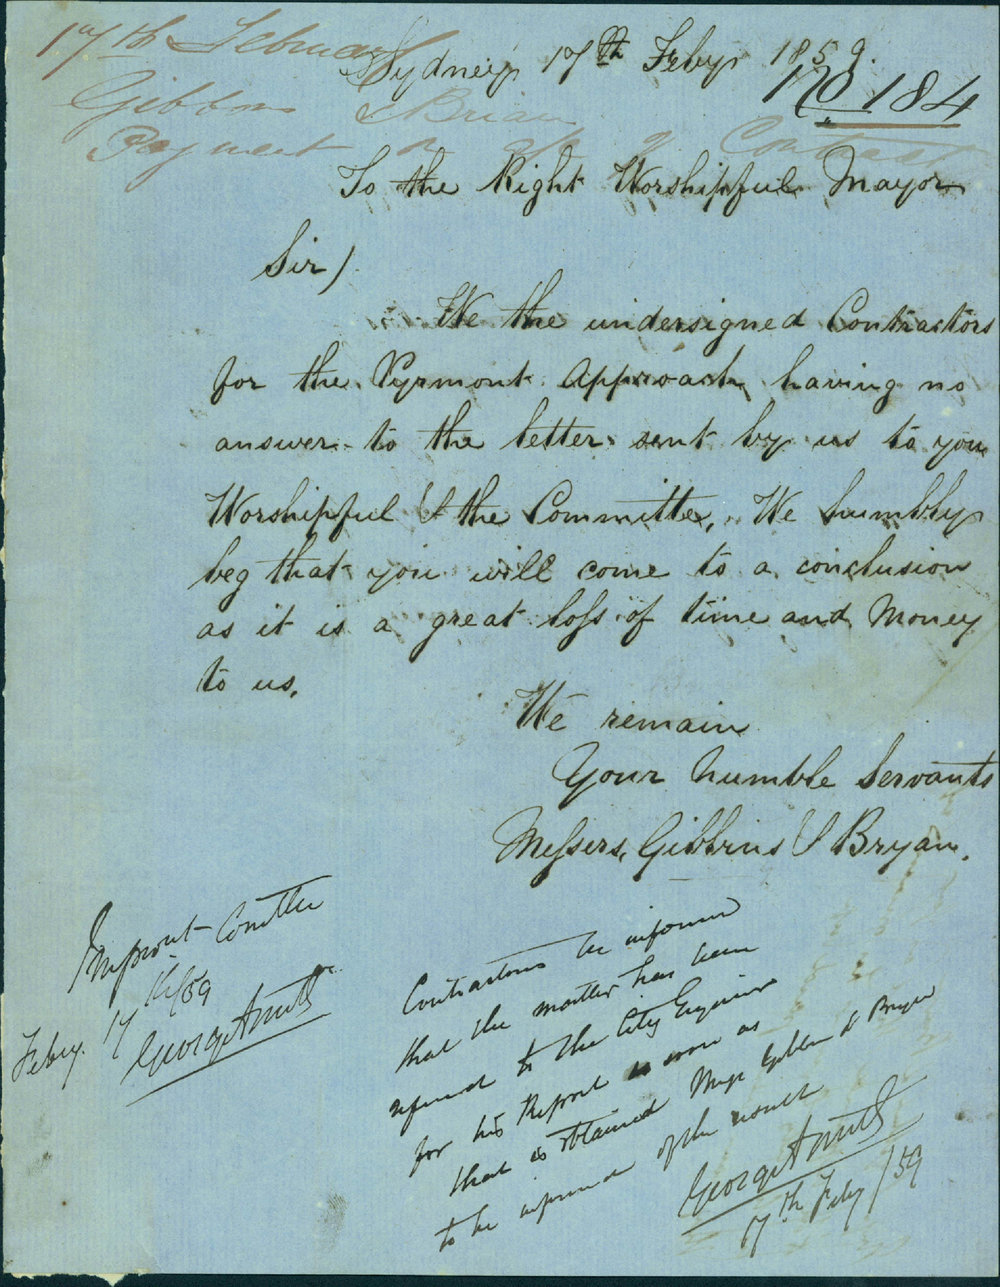 17th February
Gibbons & Brian
Payment on a/c of Contract
Sydney 17th Feby 1859.
No 184
To the Right Worshipful Mayor
Sir)
We the undersigned Contractors
for the Pyrmont Approach having no
answer to the letter sent by us to you
Worshipful & the Committe, We humbly
beg that you will come to a conclusion
as it is a great loss of time and Money
to us.
We remain
Your humble Servants
Messers, Gibbins & Bryan.
Improvt Comttee
Feby. 17
George A
Contractors be informed
that the matter has been
referred to the City Engineer
for his Report as soon as
that is obtained Messrs Gibbins & Bryan
to be informed of the result
George A
17th Feby /59